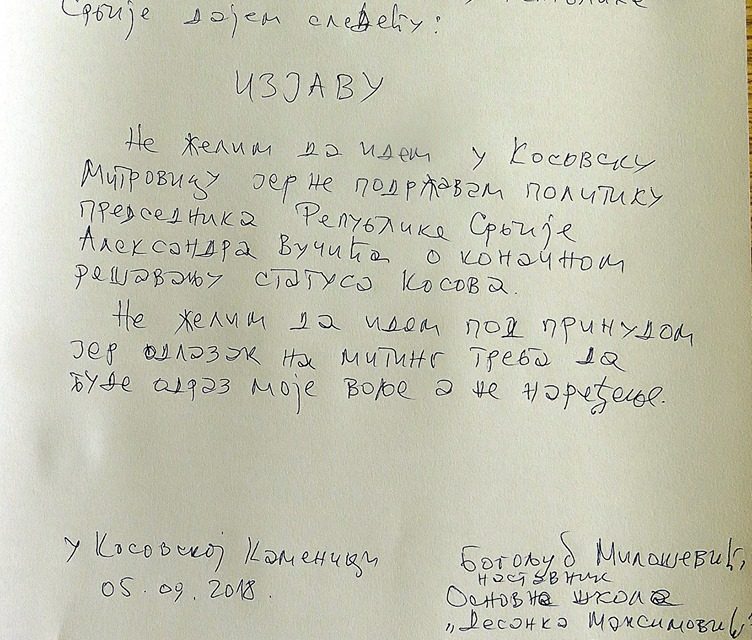 Србије дајем следећу:
ИЗЈАВУ
Не желим да идем у Косовску
Митровицу јер не подржавам политику
председника Републике Србије
Александра Вучића о коначном
решавању статуса Косова.
Не желим да идем под принудом
јер одлазак на митинг треба да
буде одраз моје воље а не наређење.
У Косовској Каменици
05.09.2018.
Богољуб Милошевић,
наставник
Основна школа
„Десанка Максимовић"